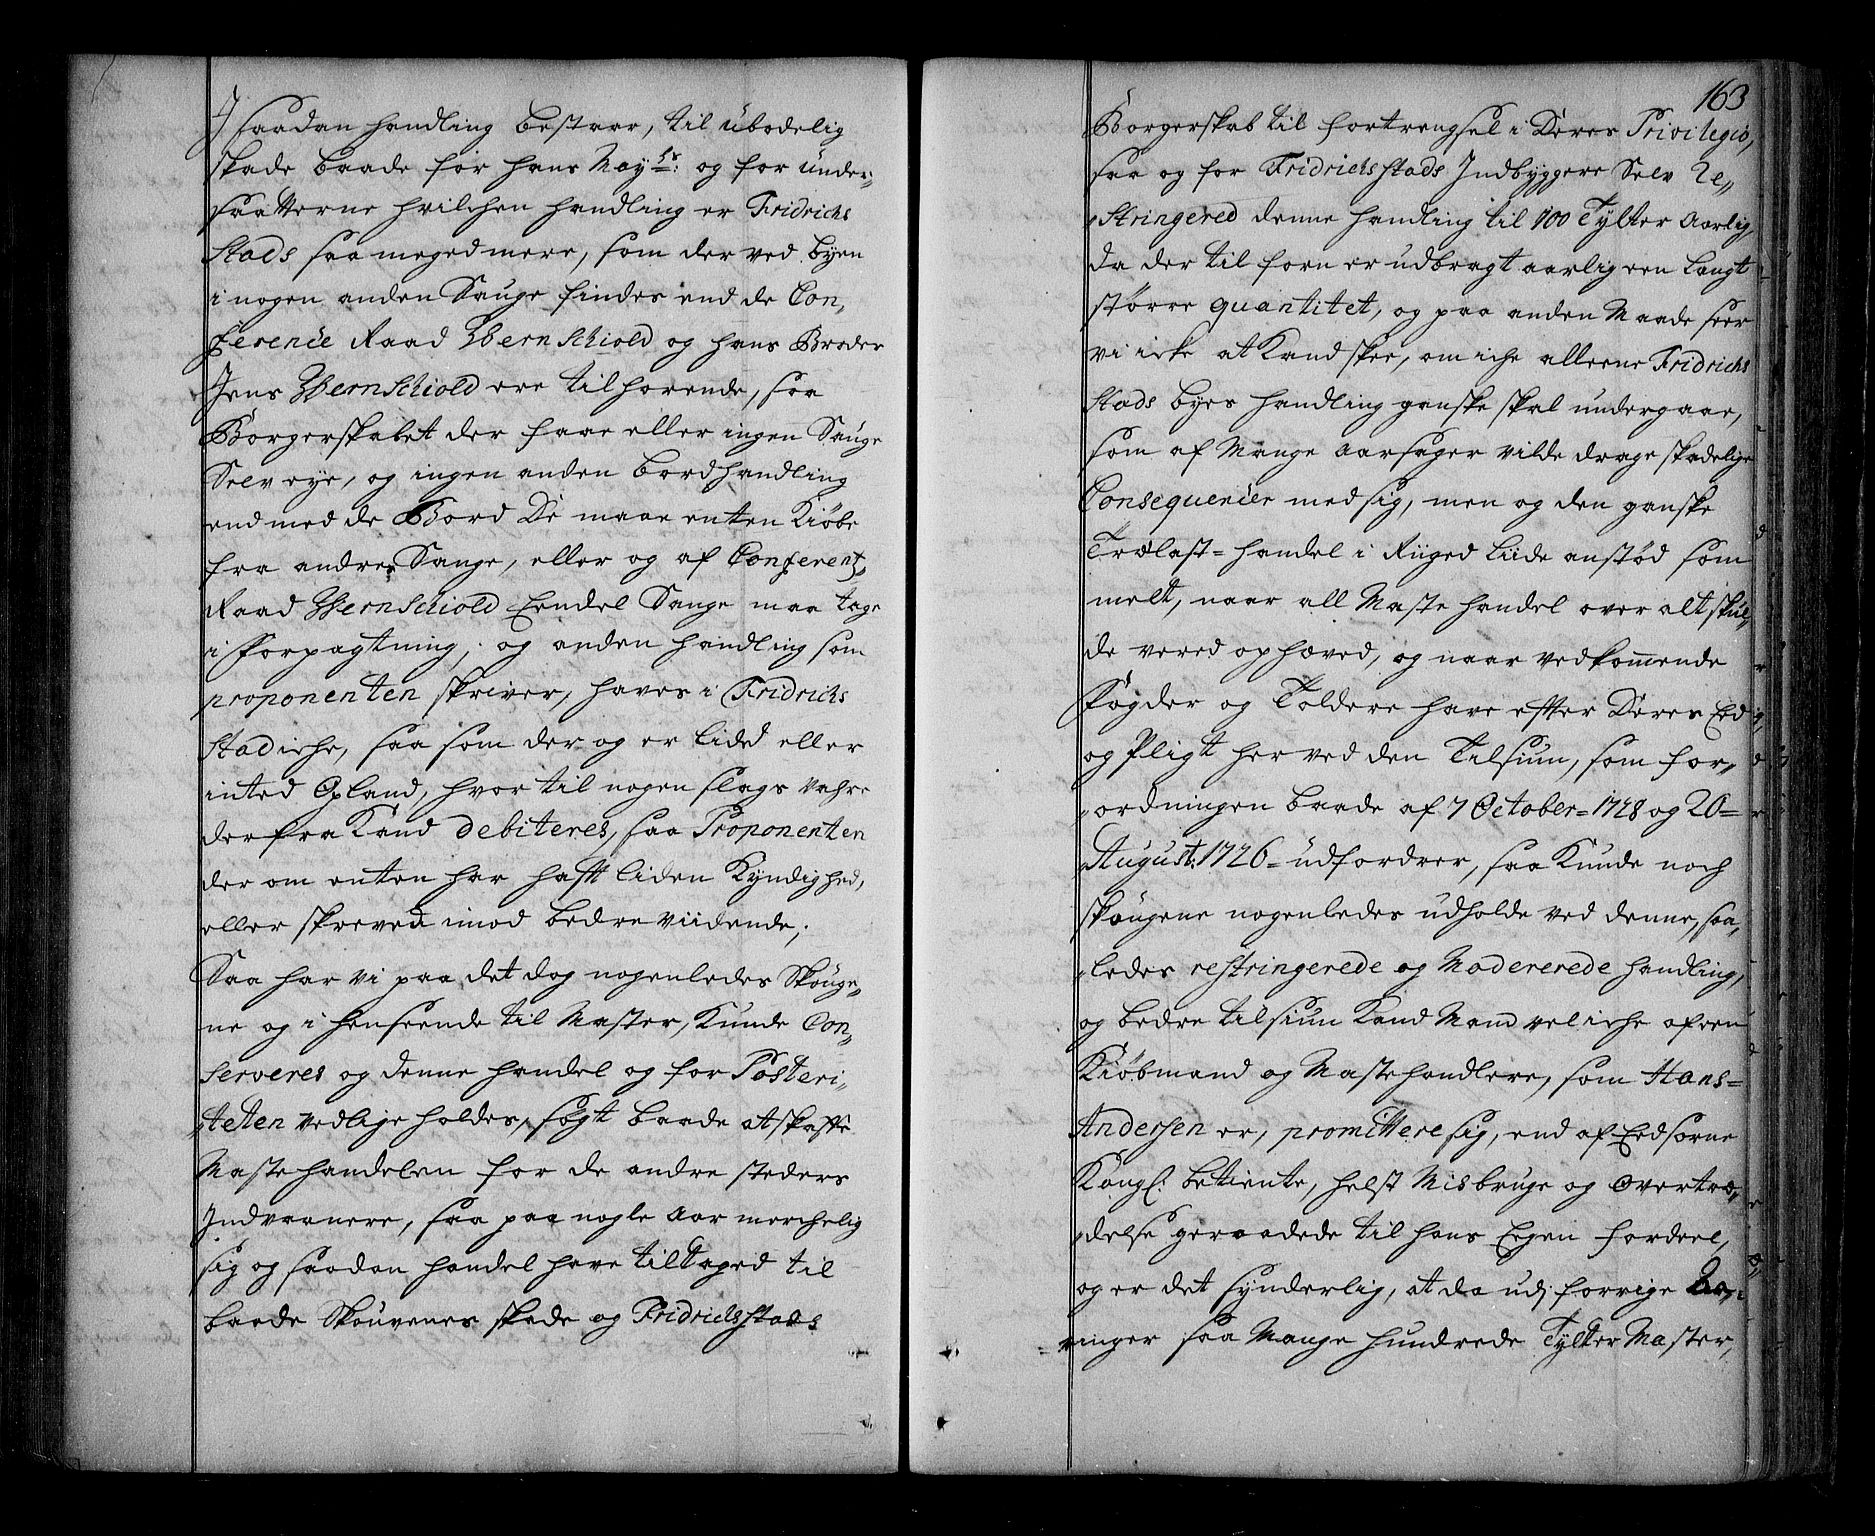 I saadan handling bestaar, til ubodelig
skade baade for hans Mayts: og for under-
saatterne hvilchen handling er Fridrichs
stads saa meged mere, som der ved byen
i nogen anden Sauge findes end de Con,,
ference Raad Wernschiold og hans Broder
Jens Wernschiold ere tilhørende, saa
Borgerskabet der faae eller ingen Sauge
Selv eye, og ingen anden bordhandling
end med de Bord De maae enten Kiøbe
fra andres Sauge, eller og af Conferentz,,
Raad Wernschiold Eendel Sauge maa tage
i Forpagtning, og anden handling som
proponenten skriver, haves i Fridrichs
stad iche, saa som der og er lided eller
inted Opland, hvor til nogen slags vahre
der fra Kand debiteres, saa Proponenten
der om enten har hafft liden Kyndighed,
eller skreved imod bedre viidende;
Saa har vi paa det dog nogenledes Skouge,,
ne og i henseende til Master, Kunde Con,,
serveres og denne handel og for Posteri,,
,,teten vedlige holdes, søgt baade at skaffe
Mastehandelen for de andre steders
Indvaanere, saa paa nogle Aar merchelig
sig og saadan handel have tiltaged til
baade Skouvenes skade og Fridrichsstads
163
Borgerskab til fortrengsel i Deres Privilegio,
saa og for Fridrichsstads Indbyggere Selv Re,,
,,stringered denne handling til 100 Tylter Aarlig,
da der tilforn er udbragt aarlig een langt
større quantitet, og paa anden Maade seer
vi icke at Kand skee, om iche alleene Fridrichs
stads byes handling ganske skal undergaae,
som af Mange Aarsager vilde drage skadelige
Consequencier med sig, men og den ganske
Trælast-handel i Riiged liide anstød som
melt, naar all Maste handel over alt skul,,
de vered ophæved, og naar vedkommende
Fogder og Toldere have efter Deres Eed
og Pligt her ved den Tilsiun, som for,,
,,ordningen baade af 7 October-1728 og 20-
August: 1726-udfordrer, saa Kunde noch
skougene nogenledes udholde ved denne, saa,,
,,ledes restringerede og Modererede handling,
og bedre tilsiun Kand Mand vel iche af een
Kiøbmand og Mastehandlere, som Hans-
Andersen er, promittere sig, end af Eedsorne
Kongl: betiente, helst Misbruge og Overtræ,,
,,delse geraadede til hans Eegen fordeel,
og er det synderlig, at da udj forrige
ringer saa Mange hundrede Tylter Master,